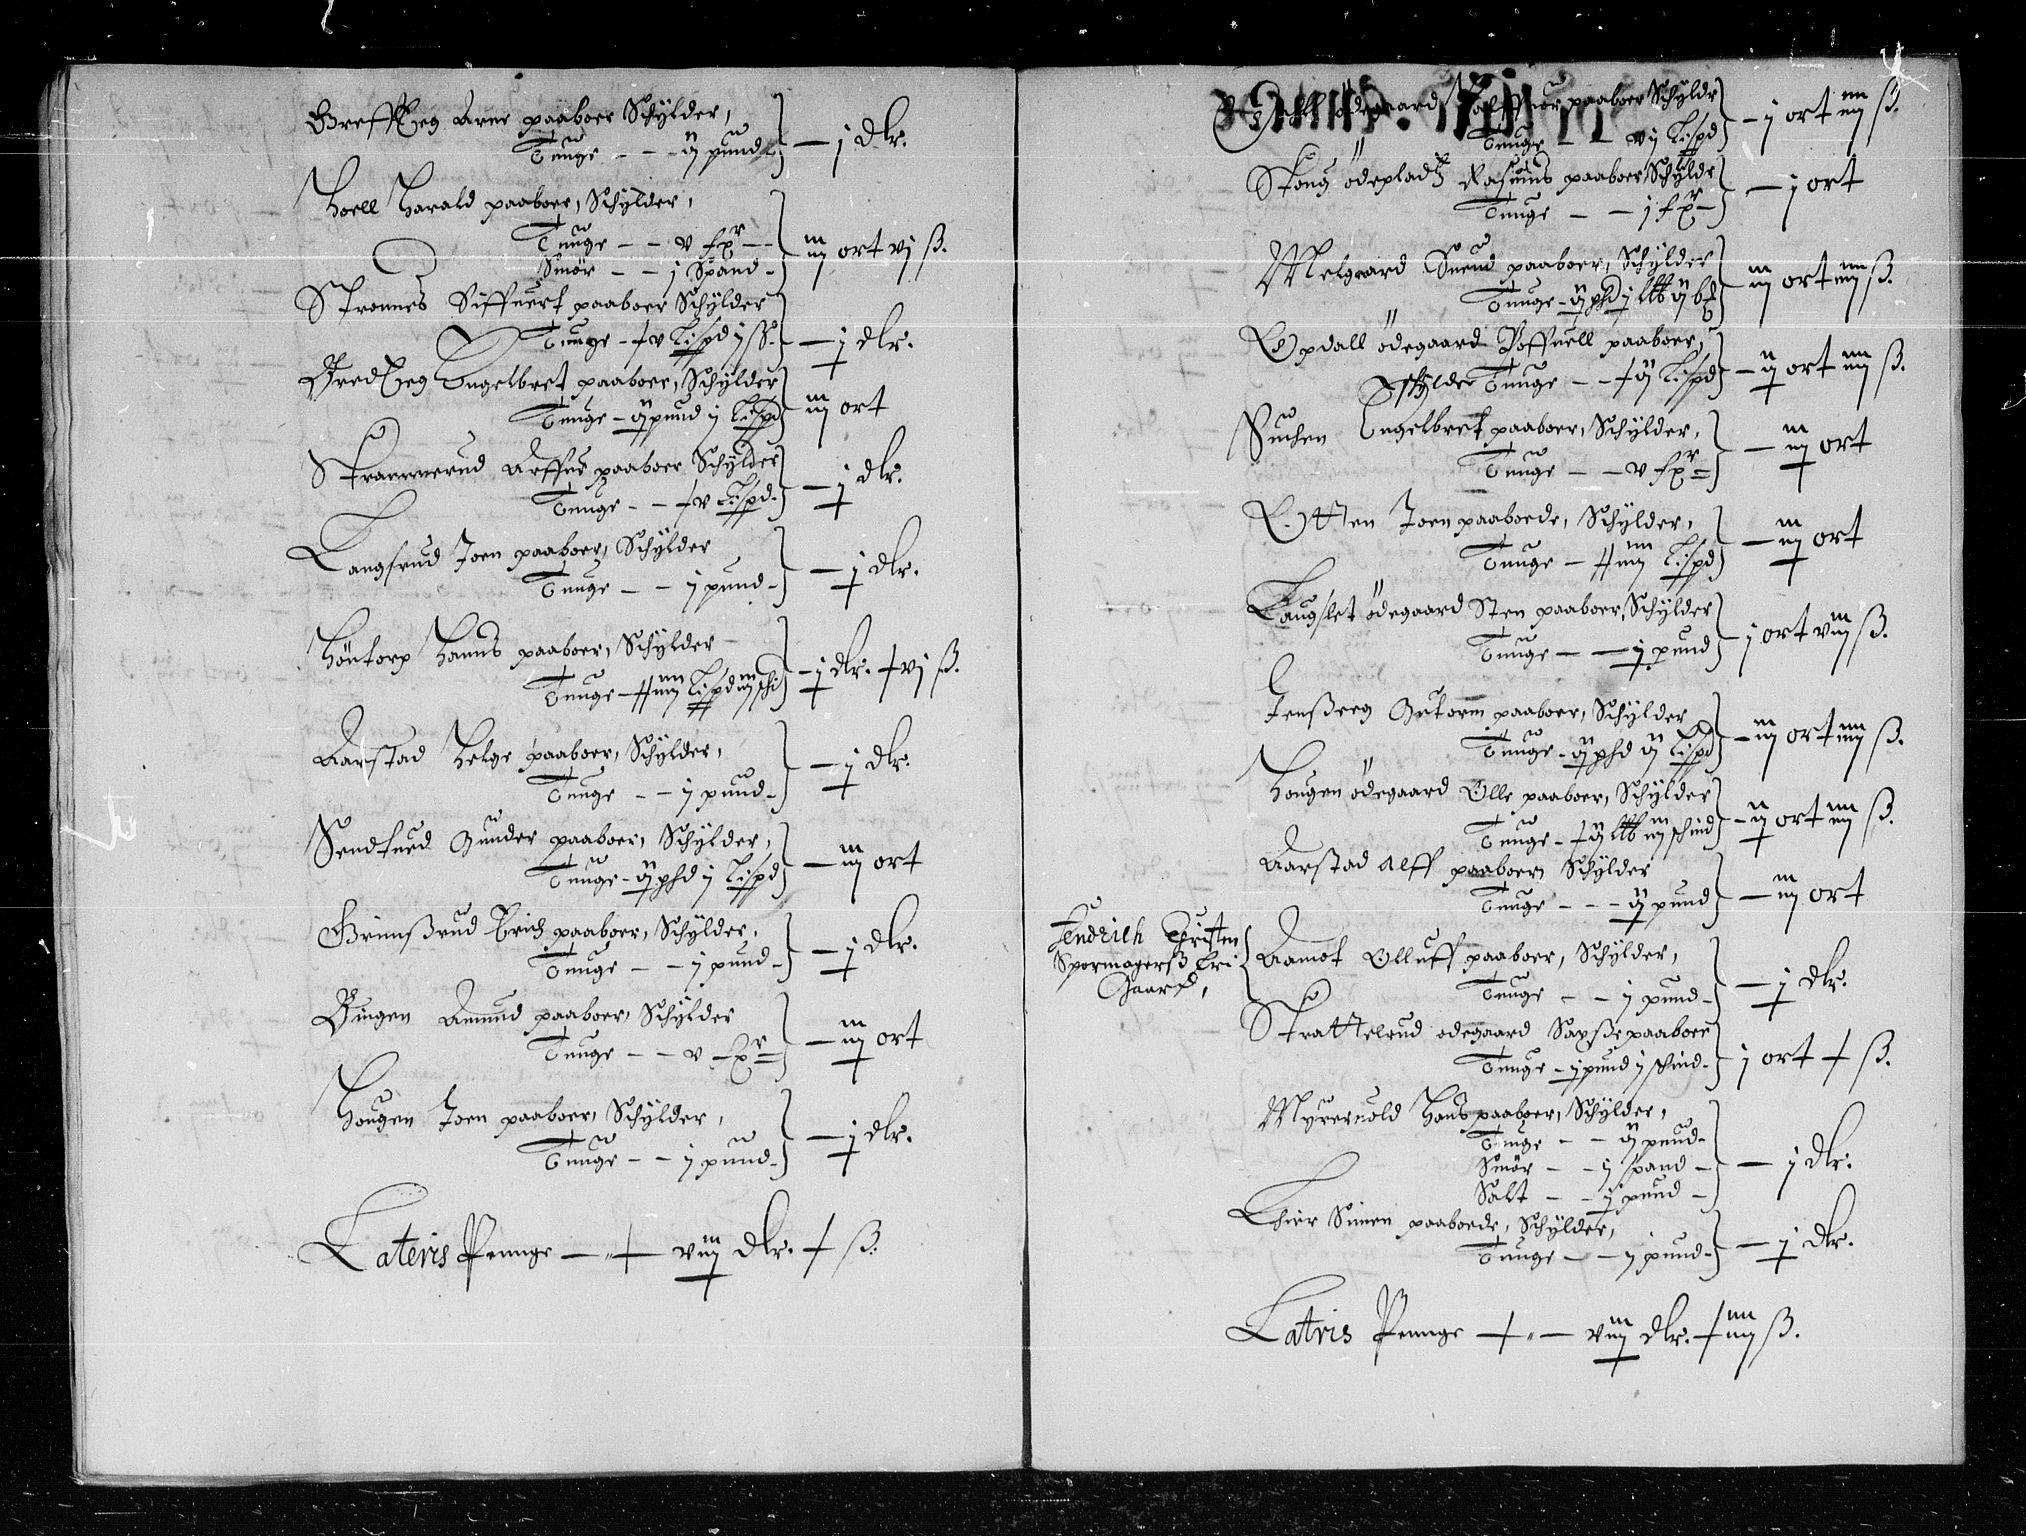 Greffßeg Arne paaboer Schylder,
Tunge - - ij pund - j dlr.
Hoell Harald paaboer, Schylder,
Tunge - - v fxr - -
Smör - - j Spand - iij ort vj ß.
Stromnes Siffuert paaboer Schylder
Tunge - + v Lispd j ß - j dlr.
Engelbret paaboer, Schylder
Tunge - ij pund j Lispd iij ort
Strammerud Arffue paaboer Schylder
Tunge - - + v Lispd. - j dlr.
Langsrud Joen paaboer, Schylder
Tunge - - j pund - - j dlr.
Höntorp Hanns paaboer, Schylder
Tunge - ++ iiij Lispd iij schi - j dlr. + vj ß.
Aarstad Helge paaboer, Schylder,
Tunge - - j pund - - j dlr.
Gunder paaboer, Schylder,
Tunge - ij phd j Lispd - iij ort
Grimßrud Erich paaboer, Schylder,
Tunge - - j pund - - j dlr.
Bingen Amund paaboer, Schylder
Tunge - - v fxr - iij ort
Hougen Joen paaboer, Schylder,
Tunge - - j pund - - j dlr.
Lateris Pennge - - + - viij dlr. + ß.
ödegaard paaboer Schyldr
Tunge - - vj Lispd - j ort iiij ß.
Stong ödepladtz Rasmus paaboer, Schyldr
Tunge - - j fxr - - j ort
Melgaard Suend paaboer, Schylder
Tunge - ij phd j Lib ij bd iij ort iiij ß.
Opdall ödegaard Roffuell paaboer,
Schylder Tunge - - + ij Lispd - ij ort iiij ß.
Engelbret paaboer, Schylder,
Tunge - - v fxr - iij ort
Joen paaboede, Schylder,
Tunge - ++ iiij Lispd - iij ort
Laugslet ödegaard Sten paaboer, Schylder
Tunge - - j pund j ort viij ß.
Jenßeeg Gutorm paaboer, Schylder
Tunge - ij phd ij Lispd - iij ort iiij ß.
Hougen ödegaard Olle paaboer, Schylder
Tunge - + ij Lib iij schind - ij ort iiij ß.
Aarstad Alff paaboer, Schylder
Tunge - - - ij pund - iij ort
Hendrich Christen
Spormagerß Fri
Gaard,
Aamot Olluff paaboer, Schylder,
Tunge - - j pund - - j dlr.
Strattelrud ödegaard paaboer
Tunge - j pund j schind - j ort + ß.
Hans paaboer, Schylder,
Tunge - - ij pund -
Smör - - j spand -
Salt - - j pund - - j dlr.
Lhier Simen paaboede, Schylder,
Tunge - - j pund - - j dlr.
Latris Pennge - + - viij dlr. + iiij ß.